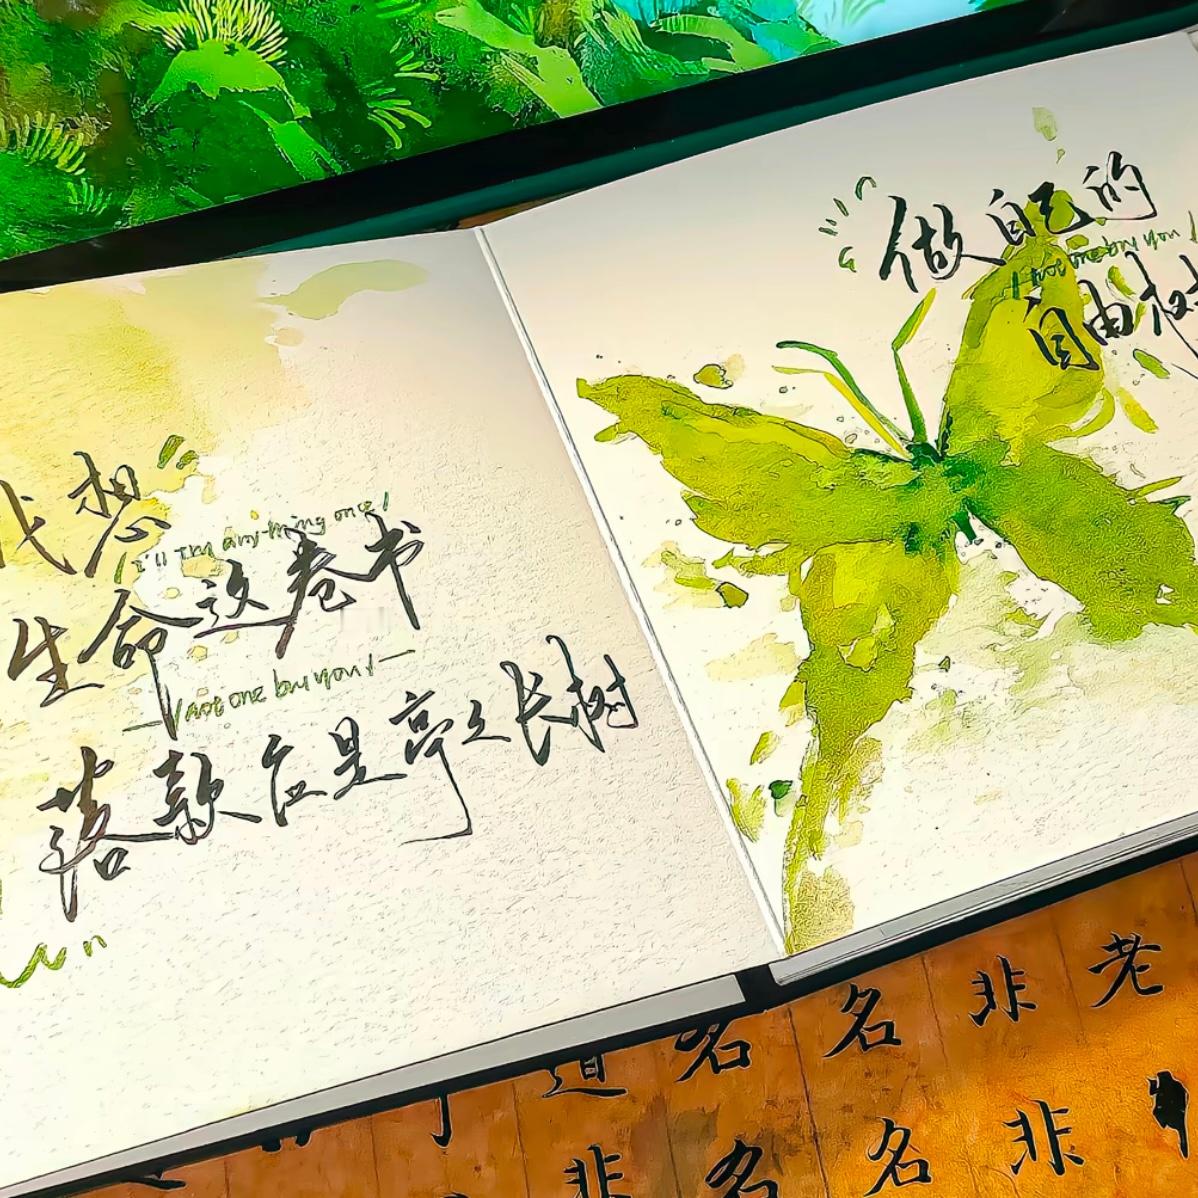 我想
I'll try any-thing once!
生命这卷书
not one but you!
落款应是亭々长树
做自己的
not one but you!
自由树
道名名非老
非名名非